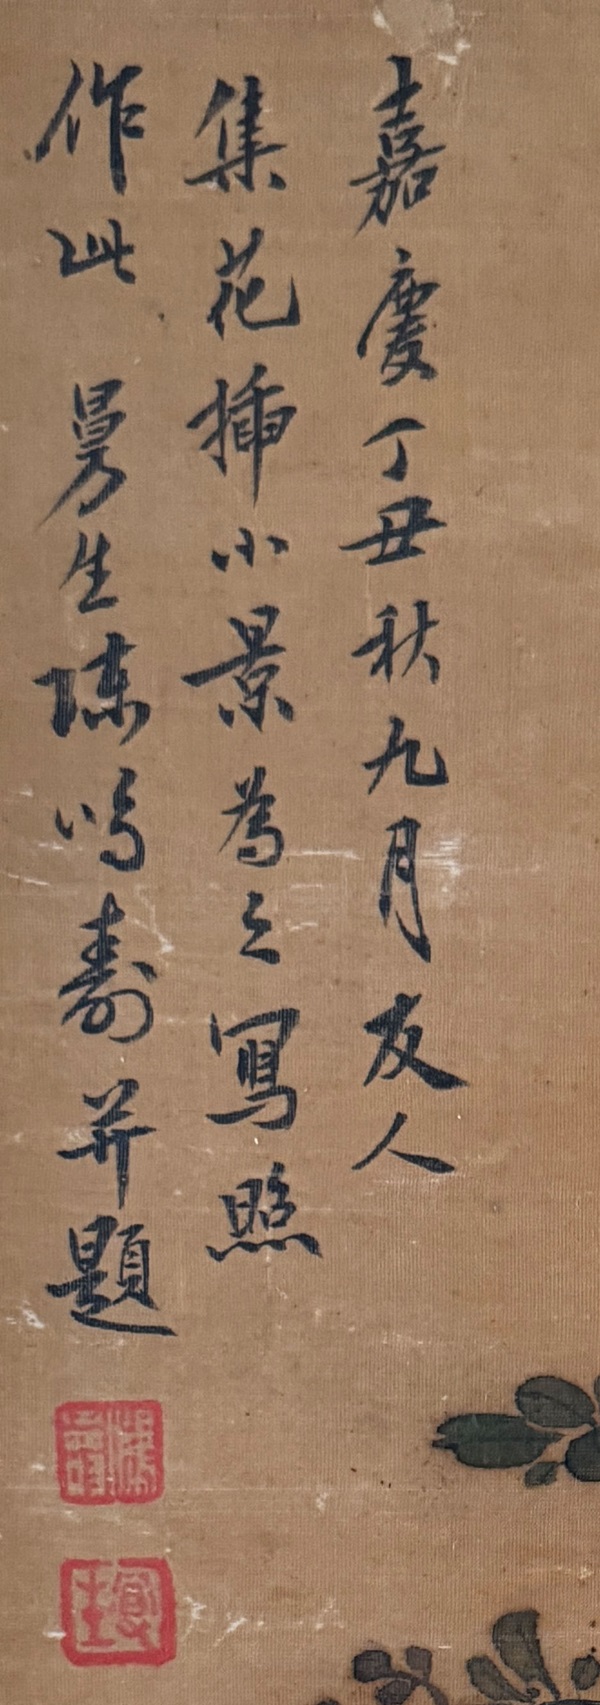 嘉慶丁丑秋九月友人
集花插小景為之寫照
作此 曼生陳鴻壽并題
鴻壽
曼生